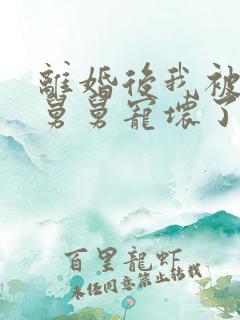 離婚後我被
舅舅寵壞了
百里龍蝦
未经同意禁止转载